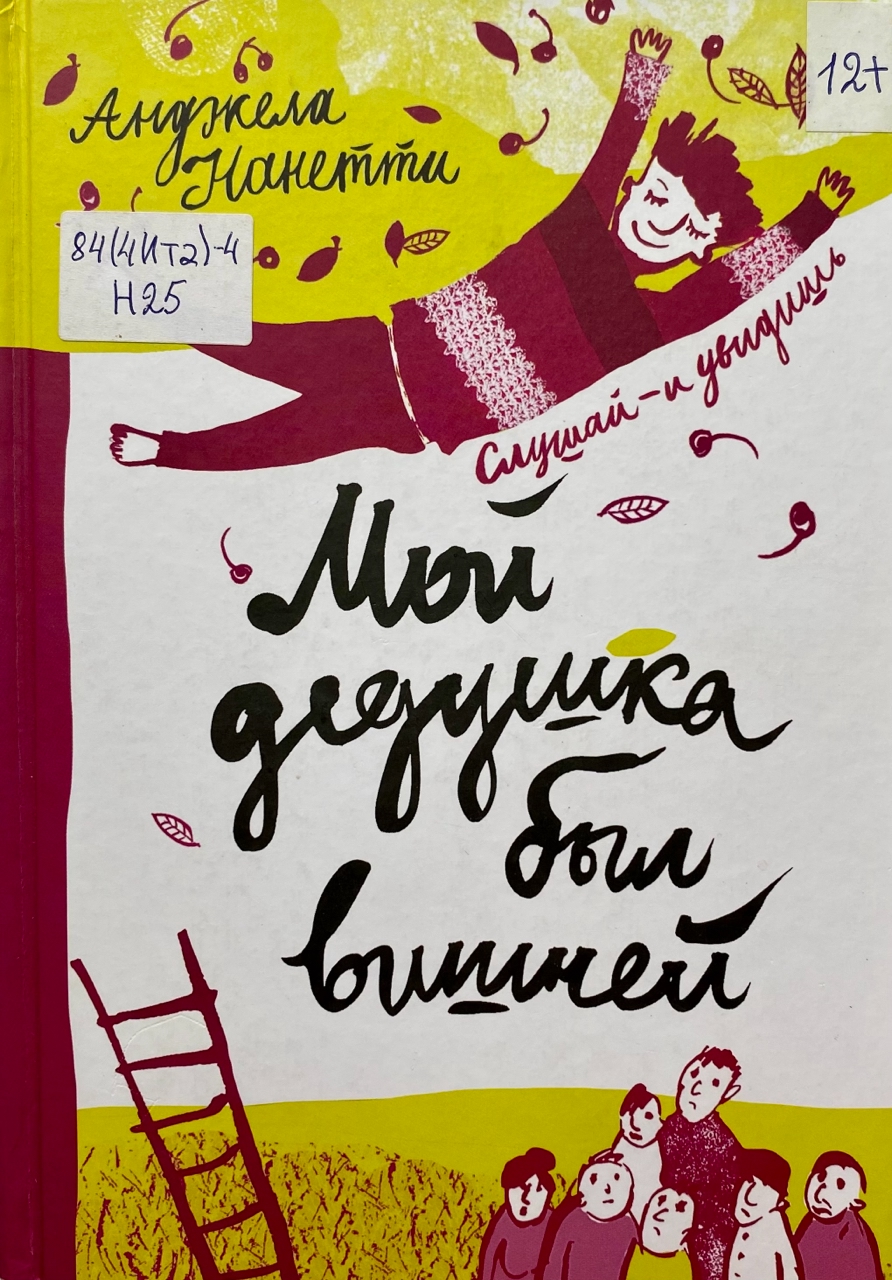 12+
Анджела
Нанетти
84(4Ит2)-4
Н25
Слушай – и увидишь
Мой
дедушка
был
вишней